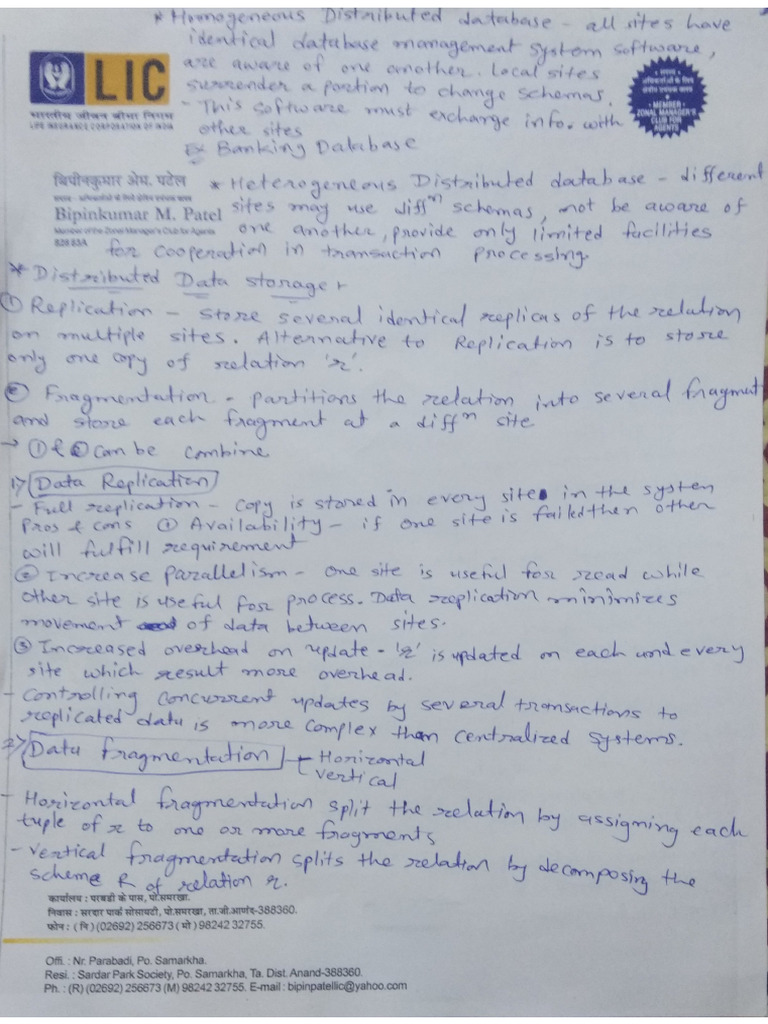 * Homogeneous Distributed database - all sites have
identical database management system software,
are aware of one another. Local sites
surrender a portion to change schemas.
- This software must exchange info. with
other sites
Ex Banking Database
LIC
भारतीय जीवन बीमा निगम
LIFE INSURANCE CORPORATION OF INDIA
MEMBER
ZONAL MANAGER'S
CLUB FOR
AGENTS
बिपीनकुमार अेम. पटेल
Bipinkumar M. Patel
Member of the Zonal Manager's Club for Agents
829 83A
* Heterogeneous Distributed database - different
sites may use diffn schemas, not be aware of
one another, provide only limited facilities
for cooperation in transaction processing.
* Distributed Data storage +
① Replication - store several identical replicas of the relation
on multiple sites. Alternative to Replication is to store
only one copy of relation 'r'.
② Fragmentation - partitions the relation into several fragment
and store each fragment at a diffn site
→ ① & ② can be combine
1) Data Replication
- Full replication - copy is stored in every site in the system
Pros & cons ① Availability - if one site is failed then other
will fulfill requirement
② Increase parallelism - one site is useful for read while
other site is useful for process. Data replication minimizes
movement of data between sites.
③ Increased overhead on update - 'r' is updated on each and every
site which result more overhead.
- Controlling concurrent updates by several transactions to
replicated data is more complex than centralized systems.
2) Data fragmentation
Horizontal
vertical
- Horizontal fragmentation split the relation by assigning each
tuple of r to one or more fragments
- vertical fragmentation splits the relation by decomposing the
scheme R of relation r.
कार्यालय : परबडी के पास, पो.समरखा.
निवास : सरदार पार्क सोसायटी, पो.समरखा, ता.जी.आणंद-388360.
फोन : (नि) (02692) 256673 (मो) 98242 32755.
Offi. : Nr. Parabadi, Po. Samarkha.
Resi. : Sardar Park Society, Po. Samarkha, Ta. Dist. Anand-388360.
Ph. : (R) (02692) 256673 (M) 98242 32755. E-mail : bipinpatellic@yahoo.com